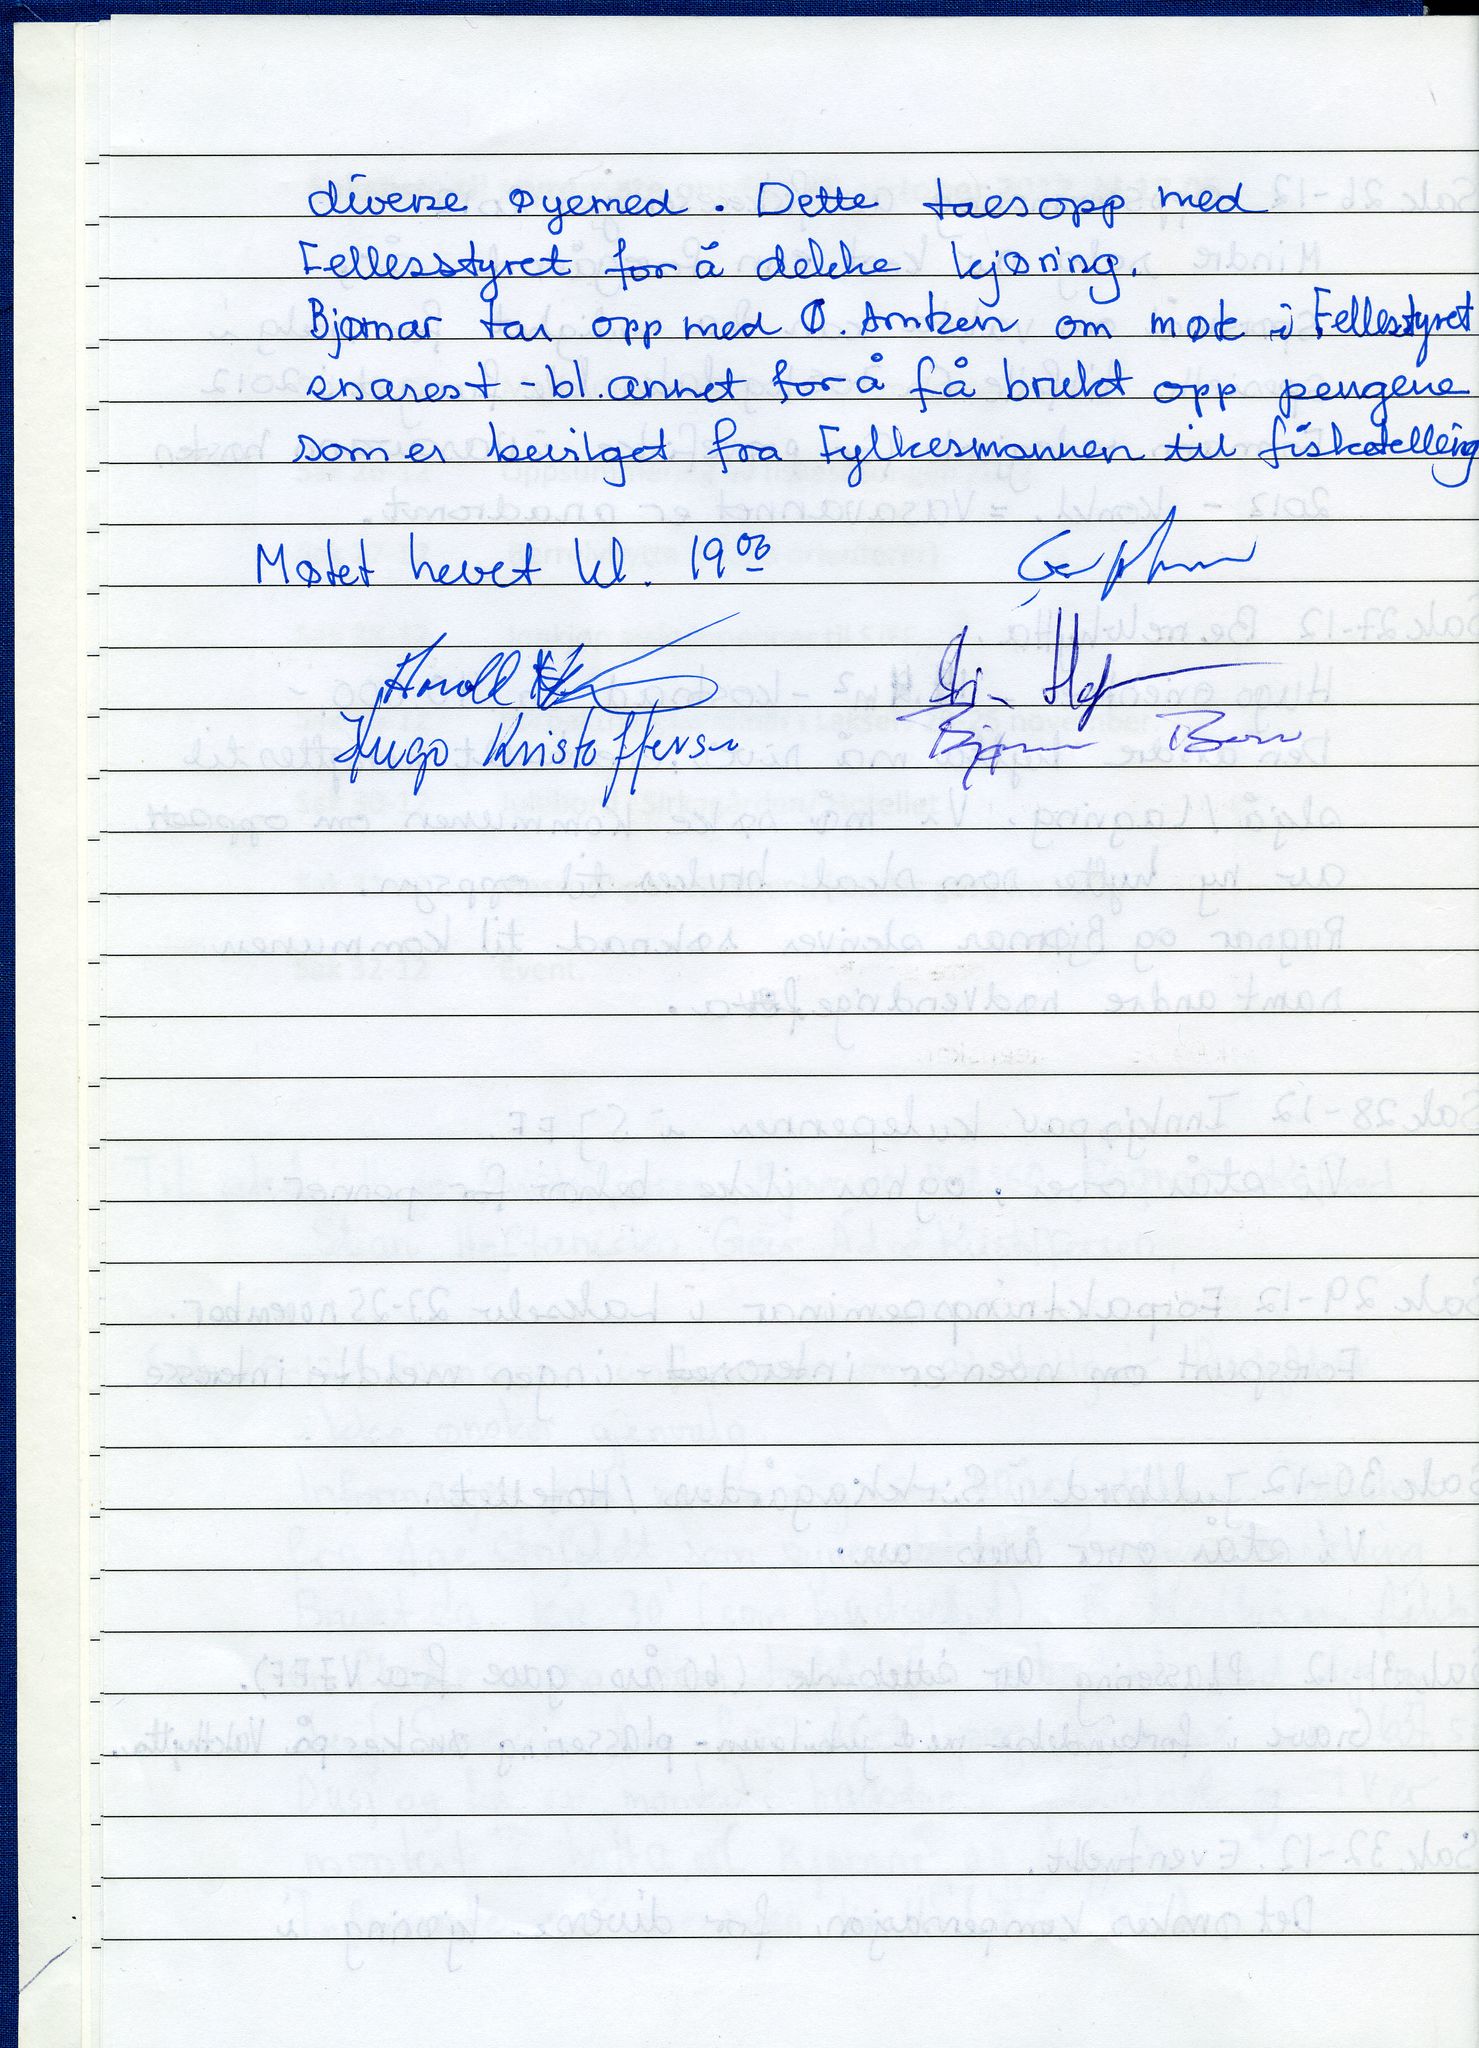 diverse øyemed. Dette taes opp med
Fellesstyret for å dekke kjøring.
Bjørnar tar opp med Ø. Arntzen om møte i Fellesstyret
snarest - bl. annet for å få brukt opp pengene
som er bevilget fra Fylkesmannen til fisketelling
Møtet hevet kl. 19 00
Harald
Hugo Kristoffersen